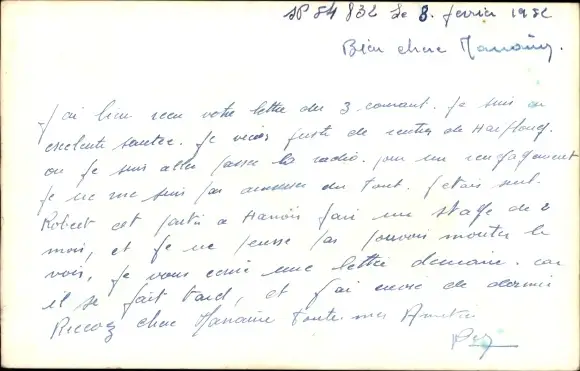 SP 54 832 le 8. fevrier 1952
Bien chere
J'ai bien recu votre lettre du 3 courant. Je suis en
excelente santée. Je viens juste de rentrer de
ou je suis aller passer la radio. pour un rengagement
Je ne me suis pas amuser du tout. J'etais seul.
Robert est partis a Hanoi fair un stage de 2
mois, et je ne pense pas pouvoir monter le
voir, je vous ecrie une lettre demain. car
il se fait tard, et j'ai envie de dormir
Recevez chere toute mes